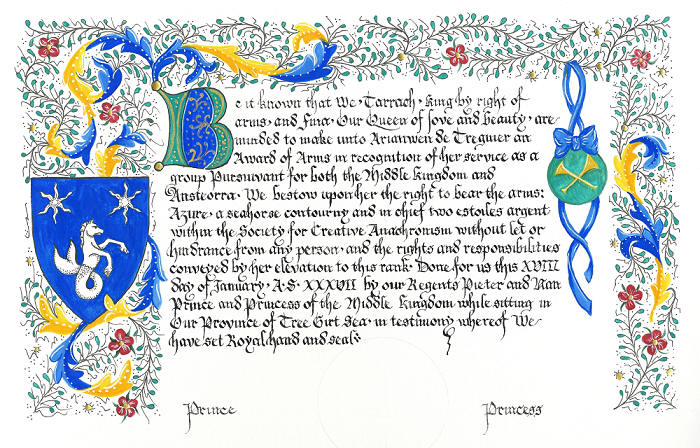 Be it known that We, Tarrach, King by right of
arms, and Fina, Our Queen of love and beauty, are
minded to make unto Arianwen de Treguier an
Award of Arms in recognition of her service as a
group Pursuivant for both the Middle Kingdom and
Ansteorra. We bestow upon her the right to bear the arms:
Azure, a seahorse contourny and in chief two estoiles argent
within the Society for Creative Anachronism without let or
hindrance from any person, and the rights and responsibilities
conveyed by her elevation to this rank. Done for us this XVIII
day of January, A.S. XXXVII by our Regents Pieter and Nan
Prince and Princess of the Middle Kingdom while sitting in
Our Province of Tree Girt Sea, in testimony whereof We
have set Royal hand and seal:
Prince Princess